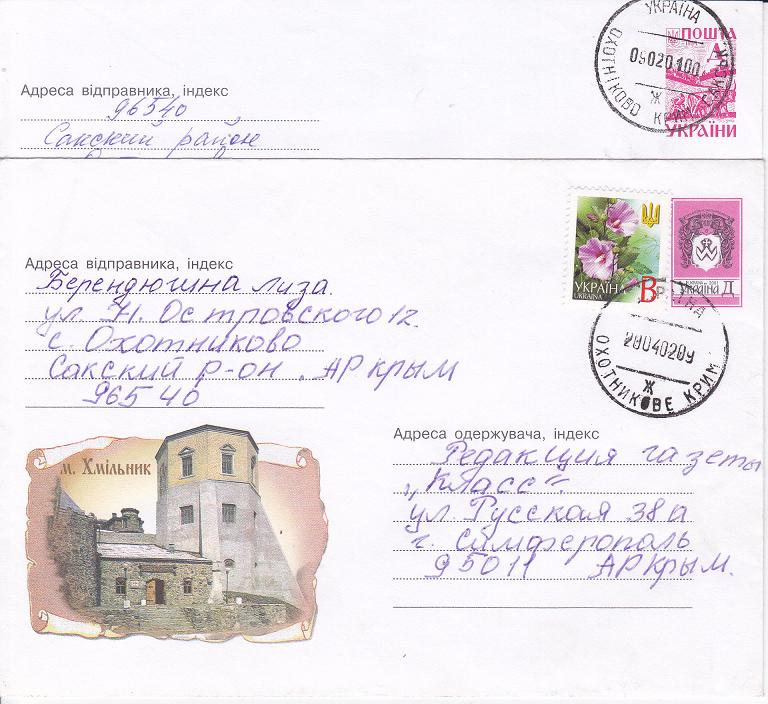 УКРАЇНА
ПОШТА
Д
090201 00
Ж
УКРАЇНИ
Адреса відправника, індекс
96540
Сакский район
УКРАЇНА
UKRAINA
В
УКРАЇНА Д
280402 09
Ж
ОХОТНИКОВЕ КРИМ
Адреса відправника, індекс
Берендюгина Лиза.
ул. Н. Островского 12.
с. Охотниково
Сакский р-он. АР Крым
96540
м. Хмільник
Адреса одержувача, індекс
Редакция газеты
„Класс".
ул Русская 38а
г. Симферополь
95011 АР Крым.